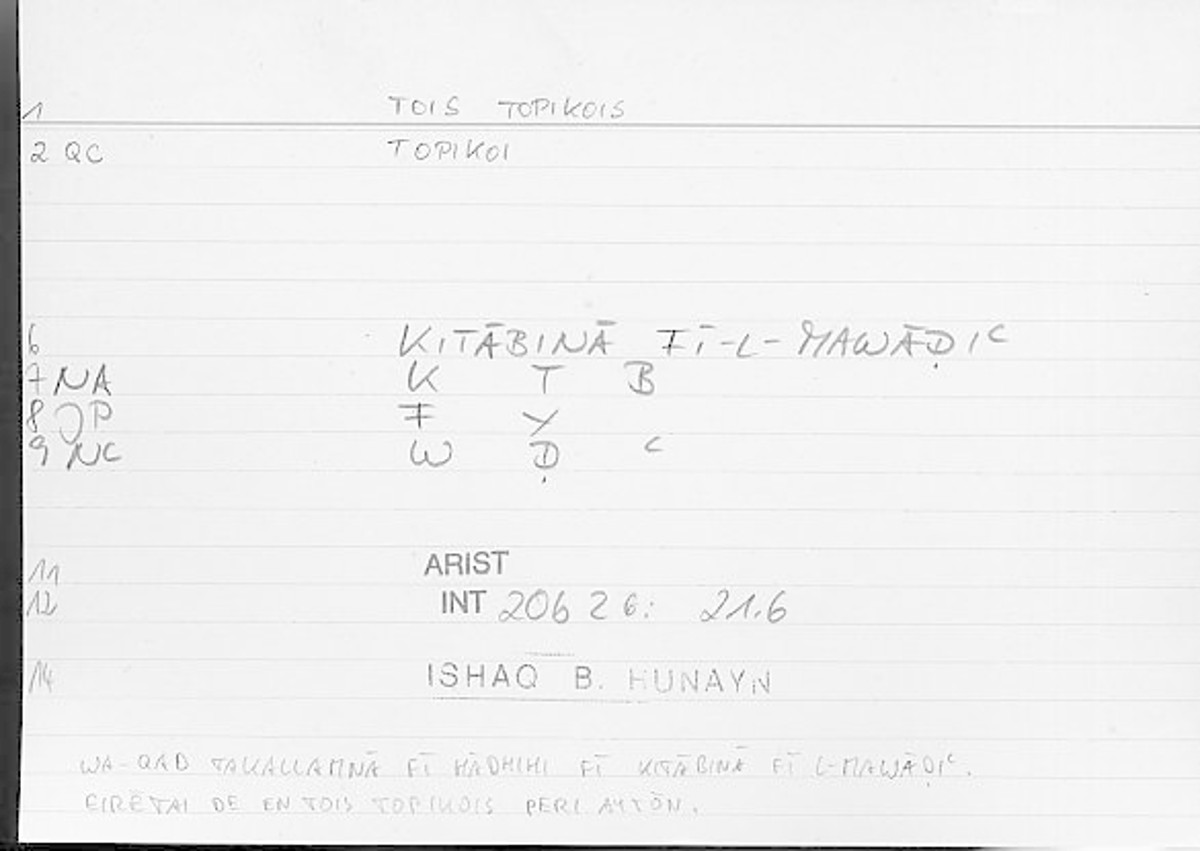 1 TOIS TOPIKOIS
2 QC TOPIKOI
6 KITĀBINĀ FĪ-L-MAWĀḌIC
7 NA K T B
8 JP F Y
9 NC W Ḍ C
11 ARIST
12 INT 206 26: 21.6
14 ISHAQ B. HUNAYN
WA-QAD TAKALLAMNĀ FĪ HĀDHIHI FĪ KITĀBINĀ FĪ L-MAWĀḌIC.
EIRĒTAI DE EN TOIS TOPIKOIS PERI AYTŌN.